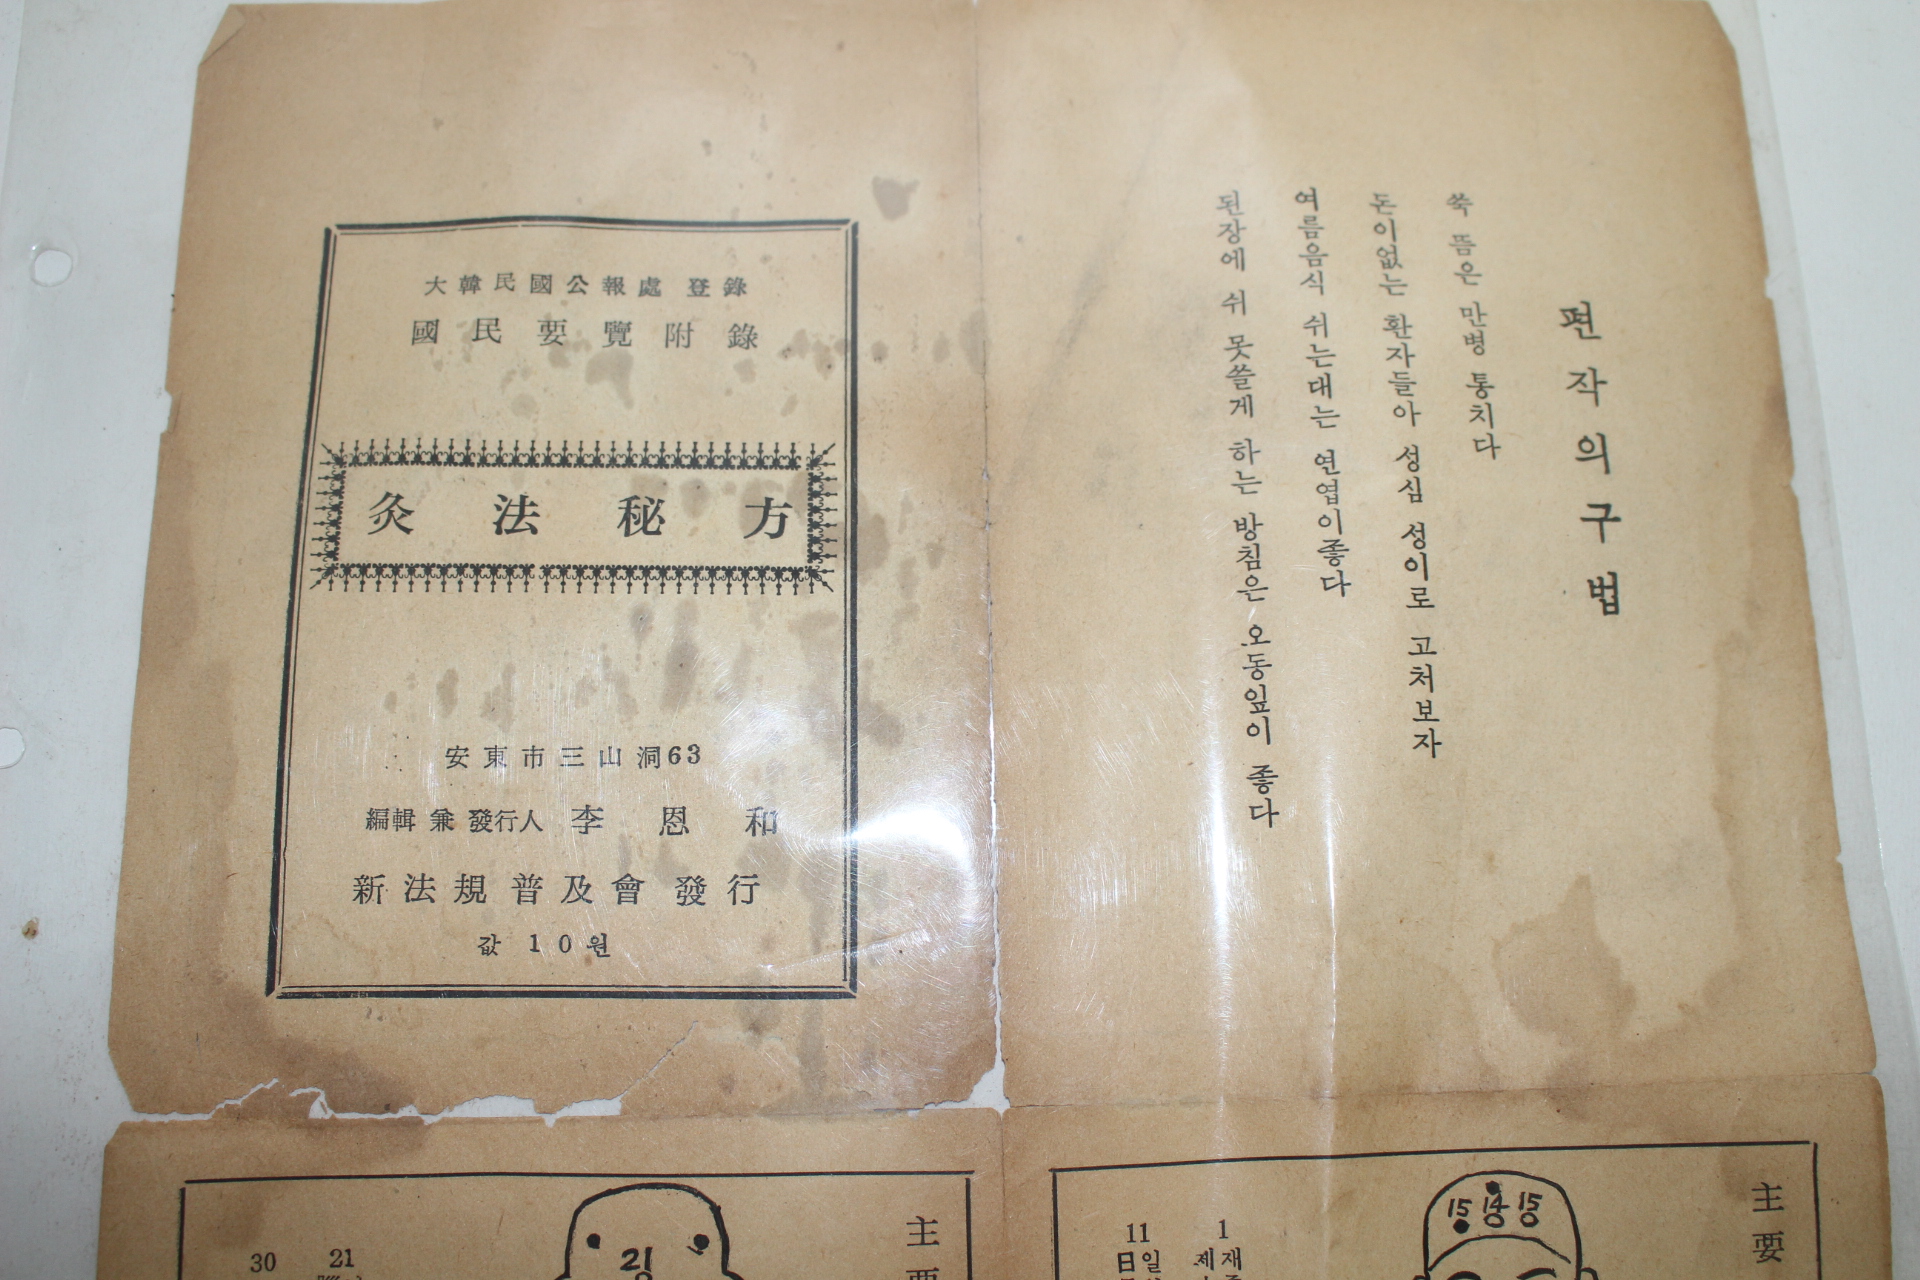 大韓民國公報處 登錄
國民要覽附錄
灸法秘方
安東市三山洞63
編輯 兼 發行人 李恩和
新法規普及會 發行
값 10원
편작의구법
쑥 뜸은 만병 통치다
돈이없는 환자들아 성심 성이로 고처보자
여름음식 쉬는대는 연엽이좋다
된장에 쉬 못쓸게 하는 방침은 오동잎이 좋다
主
21
30
21
主要
15 14 15
1
재
제
11
일
日